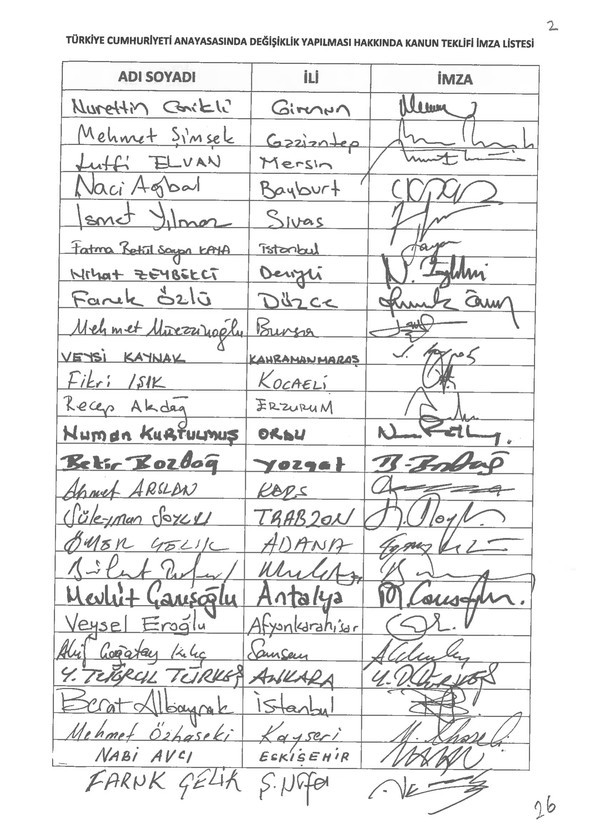 2
TÜRKİYE CUMHURİYETİ ANAYASASINDA DEĞİŞİKLİK YAPILMASI HAKKINDA KANUN TEKLİFİ İMZA LİSTESİ
ADI SOYADI İLİ İMZA
Nurettin Canikli Giresun
Mehmet Şimşek Gaziantep
Lutfi ELVAN Mersin
Naci Ağbal Bayburt
İsmet Yılmaz Sivas
Fatma Betül Sayan KAYA istanbul
Nihat ZEYBEKCİ Denizli
Faruk Özlü Düzce
Mehmet Müezzinoğlu Bursa
VEYSİ KAYNAK KAHRAMANMARAŞ
Fikri IŞIK KOCAELİ
Recep Akdağ ERZURUM
Numan KURTULMUŞ ORDU
Bekir Bozdağ Yozgat B. Bozdağ
Ahmet ARSLAN KARS
Süleyman SOYLU TRABZON
ÖMER ÇELİK ADANA
Mevlüt Çavuşoğlu Antalya M. Çavuşoğlu
Veysel Eroğlu Afyonkarahisar
Akif Çağatay Kılıç Samsun
Y. TUĞRUL TÜRKEŞ ANKARA
Berat Albayrak istanbul
Mehmet Özhaseki Kayseri
NABİ AVCI ESKİŞEHİR
FARUK ÇELİK Ş.Urfa
26